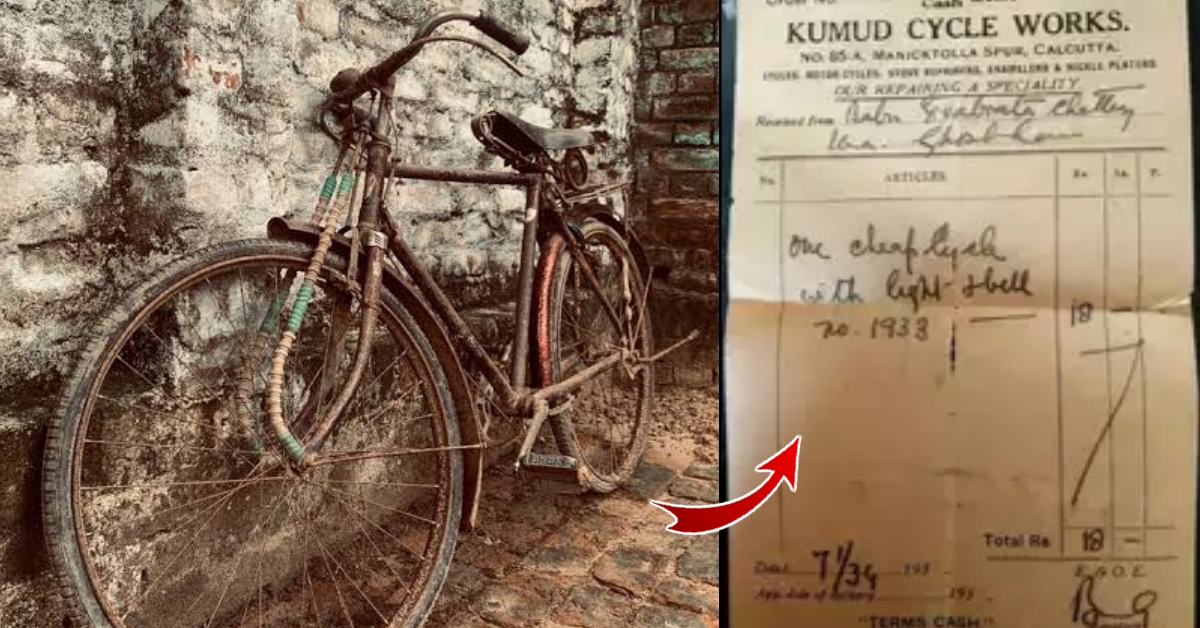 Order No.
Cash
KUMUD CYCLE WORKS.
NO. 85-A, MANICKTOLLA SPUR, CALCUTTA.
CYCLES, MOTOR-CYCLES, STOVE REPAIRERS, ENAMELLERS & NICKLE PLATERS
OUR REPAIRING A SPECIALITY
Received from Babu
No. ARTICLES. Rs. As. P.
one cheap cycle
with light & bell
no. 1933 — 18 —
Total Rs 18 —
Date 193
App. date of delivery 193 .
E. & O. E.
"TERMS CASH"